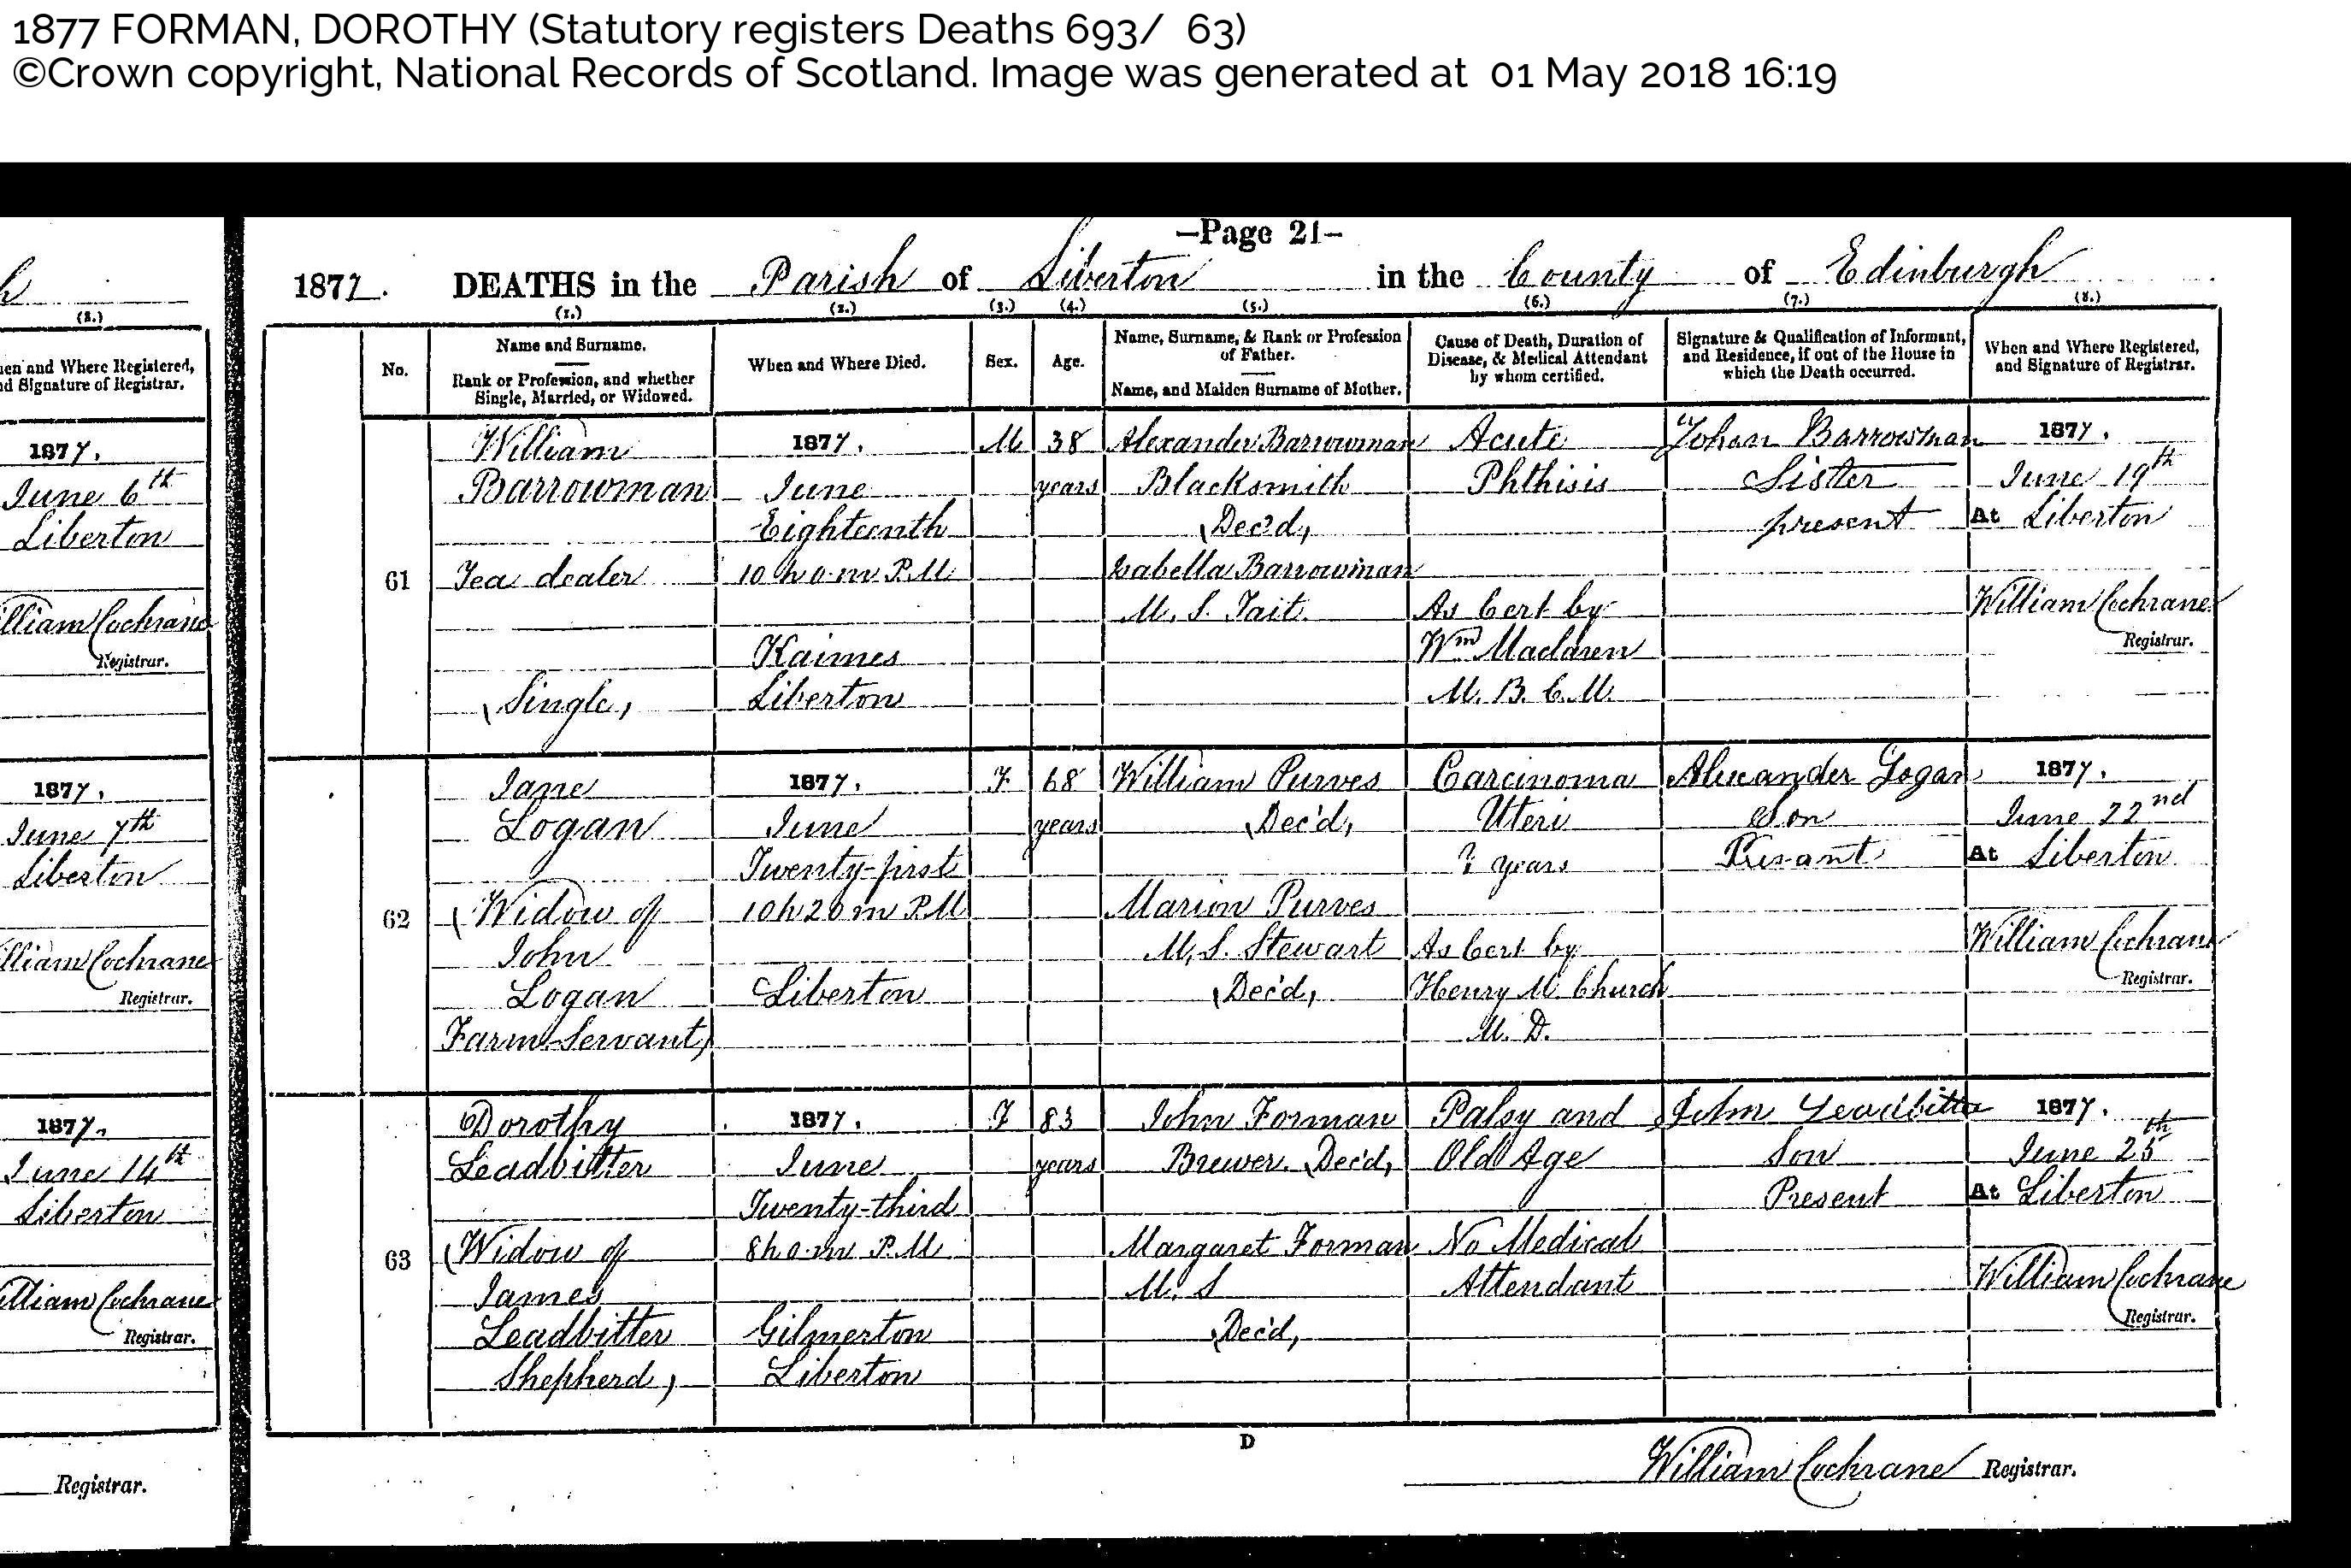 1877 FORMAN, DOROTHY (Statutory registers Deaths 693/ 63)
©Crown copyright, National Records of Scotland. Image was generated at 01 May 2018 16:19
—Page 21—
1877. DEATHS in the Parish of Liberton in the County of Edinburgh
(1.) (2.) (3.) (4.) (5.) (6.) (7.) (8.)
No.
Name and Surname.
Rank or Profession, and whether
Single, Married, or Widowed.
When and Where Died.
Sex.
Age.
Name, Surname, & Rank or Profession
of Father.
Name, and Maiden Surname of Mother.
Cause of Death, Duration of
Disease, & Medical Attendant
by whom certified.
Signature & Qualification of Informant,
and Residence, if out of the House in
which the Death occurred.
When and Where Registered,
and Signature of Registrar.
61
William
Barrowman
Tea dealer
(Single)
1877.
June
Eighteenth
10 h 0 m P.M
Kaimes
Liberton
M
38
years
Alexander Barrowman
Blacksmith
(Dec'd)
Isabella Barrowman
M. S. Tait.
Acute
Phthisis
As Cert by
Wm Maclaren
M. B. C. M.
Johan Barrowman
Sister
present
1877.
June 19th
At Liberton
William Cochrane
Registrar.
62
Jane
Logan
(Widow of
John
Logan
Farm-Servant)
1877.
June
Twenty-first
10 h 20 m P.M
Liberton
F
68
years
William Purves
(Dec'd)
Marion Purves
M. S. Stewart
(Dec'd)
Carcinoma
Uteri
years
As Cert by
Henry M. Church
M. D.
Alexander Logan
Son
Presant
1877.
June 22nd
At Liberton
William Cochrane
Registrar.
63
Dorothy
Leadbitter
(Widow of
James
Leadbitter
Shepherd)
1877.
June
Twenty-third
8 h 0 m P.M
Gilmerton
Liberton
F
83
years
John Forman
Brewer. (Dec'd)
Margaret Forman
M. S
(Dec'd)
Palsy and
Old Age
No Medical
Attendant
John Leadbitter
Son
Present
1877.
June 25th
At Liberton
William Cochrane
Registrar.
D
William Cochrane Registrar.
(8.)
When and Where Registered,
and Signature of Registrar.
1877.
June 6th
Liberton
William Cochrane
Registrar.
1877.
June 7th
Liberton
William Cochrane
Registrar.
1877.
June 14th
Liberton
William Cochrane
Registrar.
Registrar.